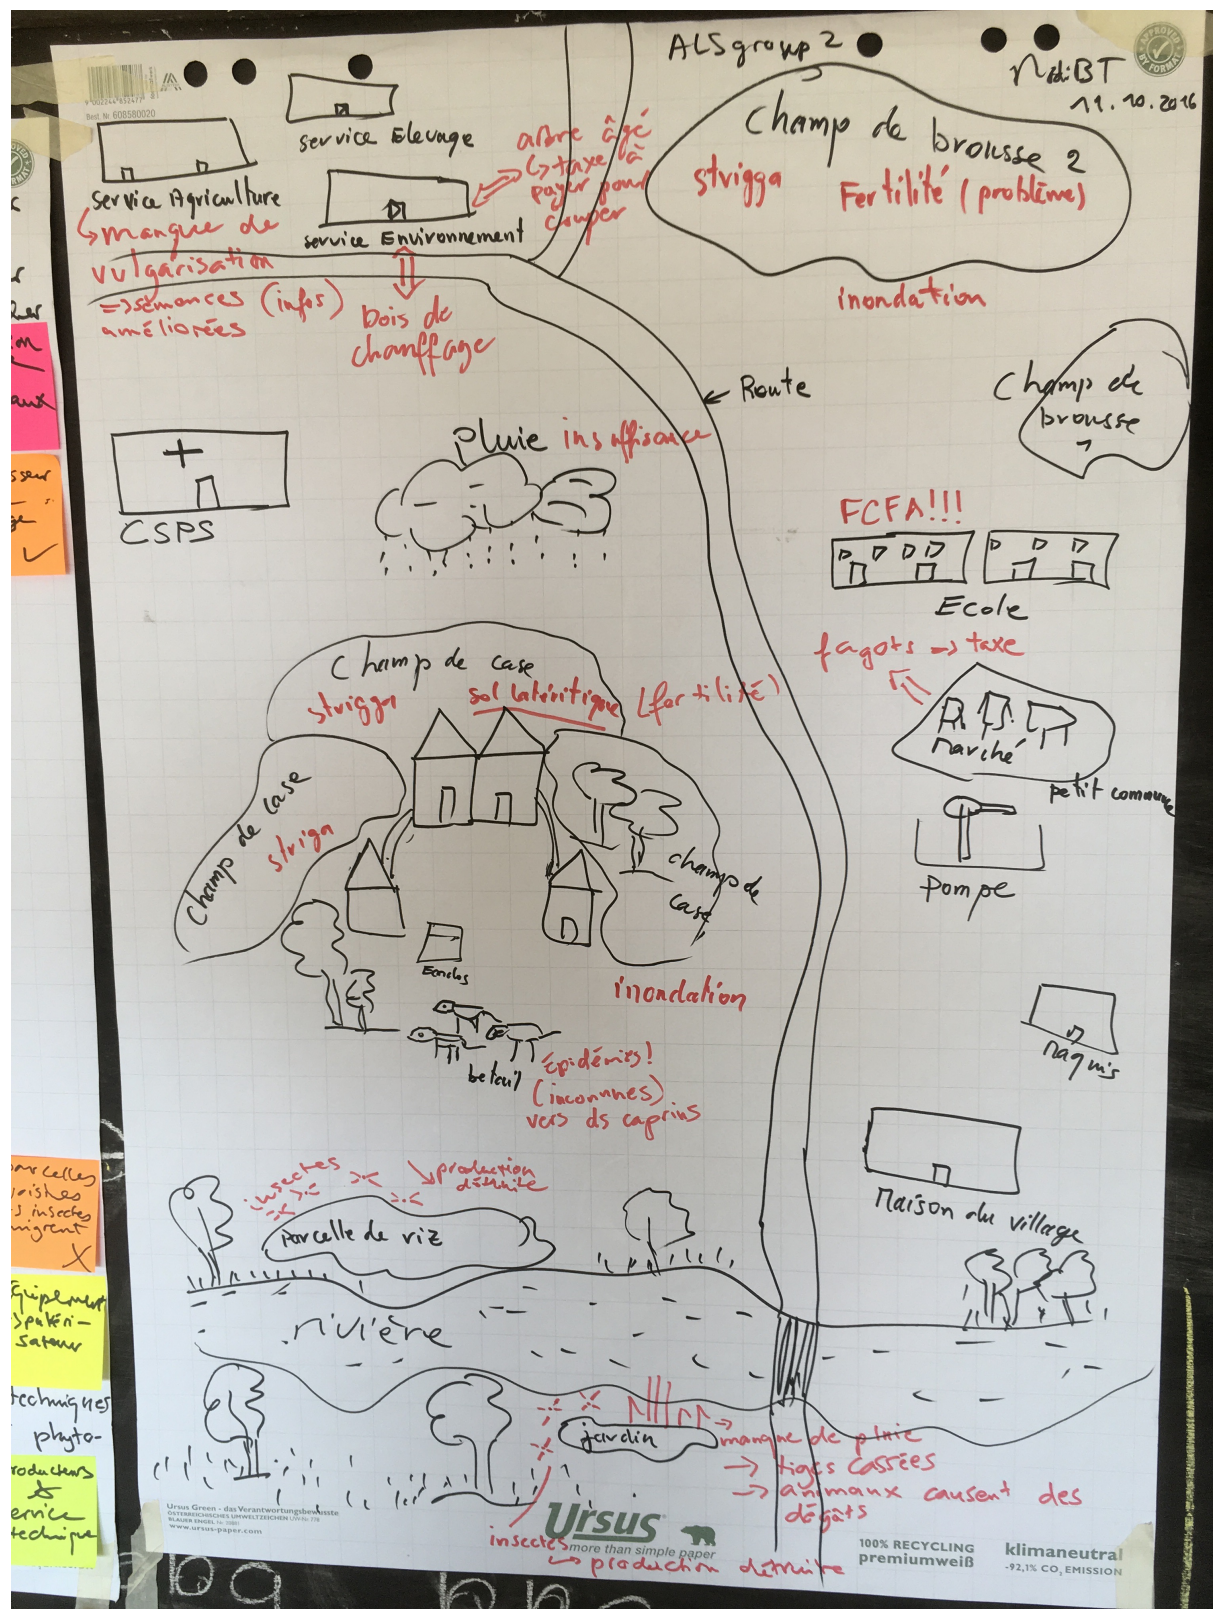 ALS group 2
11.10.2016
9 002244 832477
Best. Nr. 608580020
APPROVED BY FORMAT
service Elevage
Service Agriculture
↳ manque de
vulgarisation
=> sémances (infos)
améliorées
service Environnement
arbre âgé
↳ taxe à
payer pour
couper
bois de
chauffage
Champ de
brousse 2
strigga
Fertilité (problème)
inondation
Champ de
brousse
1
Route
pluie insuffisance
CSPS
FCFA!!!
Ecole
fagots => taxe
Marché
petit commerce
Pompe
Champ de case
strigga
sol latéritique (fertilité)
Champ de case
striga
champ de
case
Enclos
inondation
betail
épidémies!
(inconnues)
vers ds caprins
Maquis
Maison du village
insectes
production
détruite
Parcelle de riz
rivière
jardin
manque de pluie
→ tiges cassées
→ animaux causent des
dégâts
insectes
↳ production détruite
Ursus Green - das Verantwortungsbewusste
ÖSTERREICHISCHES UMWELTZEICHEN
BLAUER ENGEL
www.ursus-paper.com
Ursus
more than simple paper
100% RECYCLING
premiumweiß
klimaneutral
-92,1% CO₂ EMISSION
aux
parcelles
insectes
techniques
phyto-
service
technique